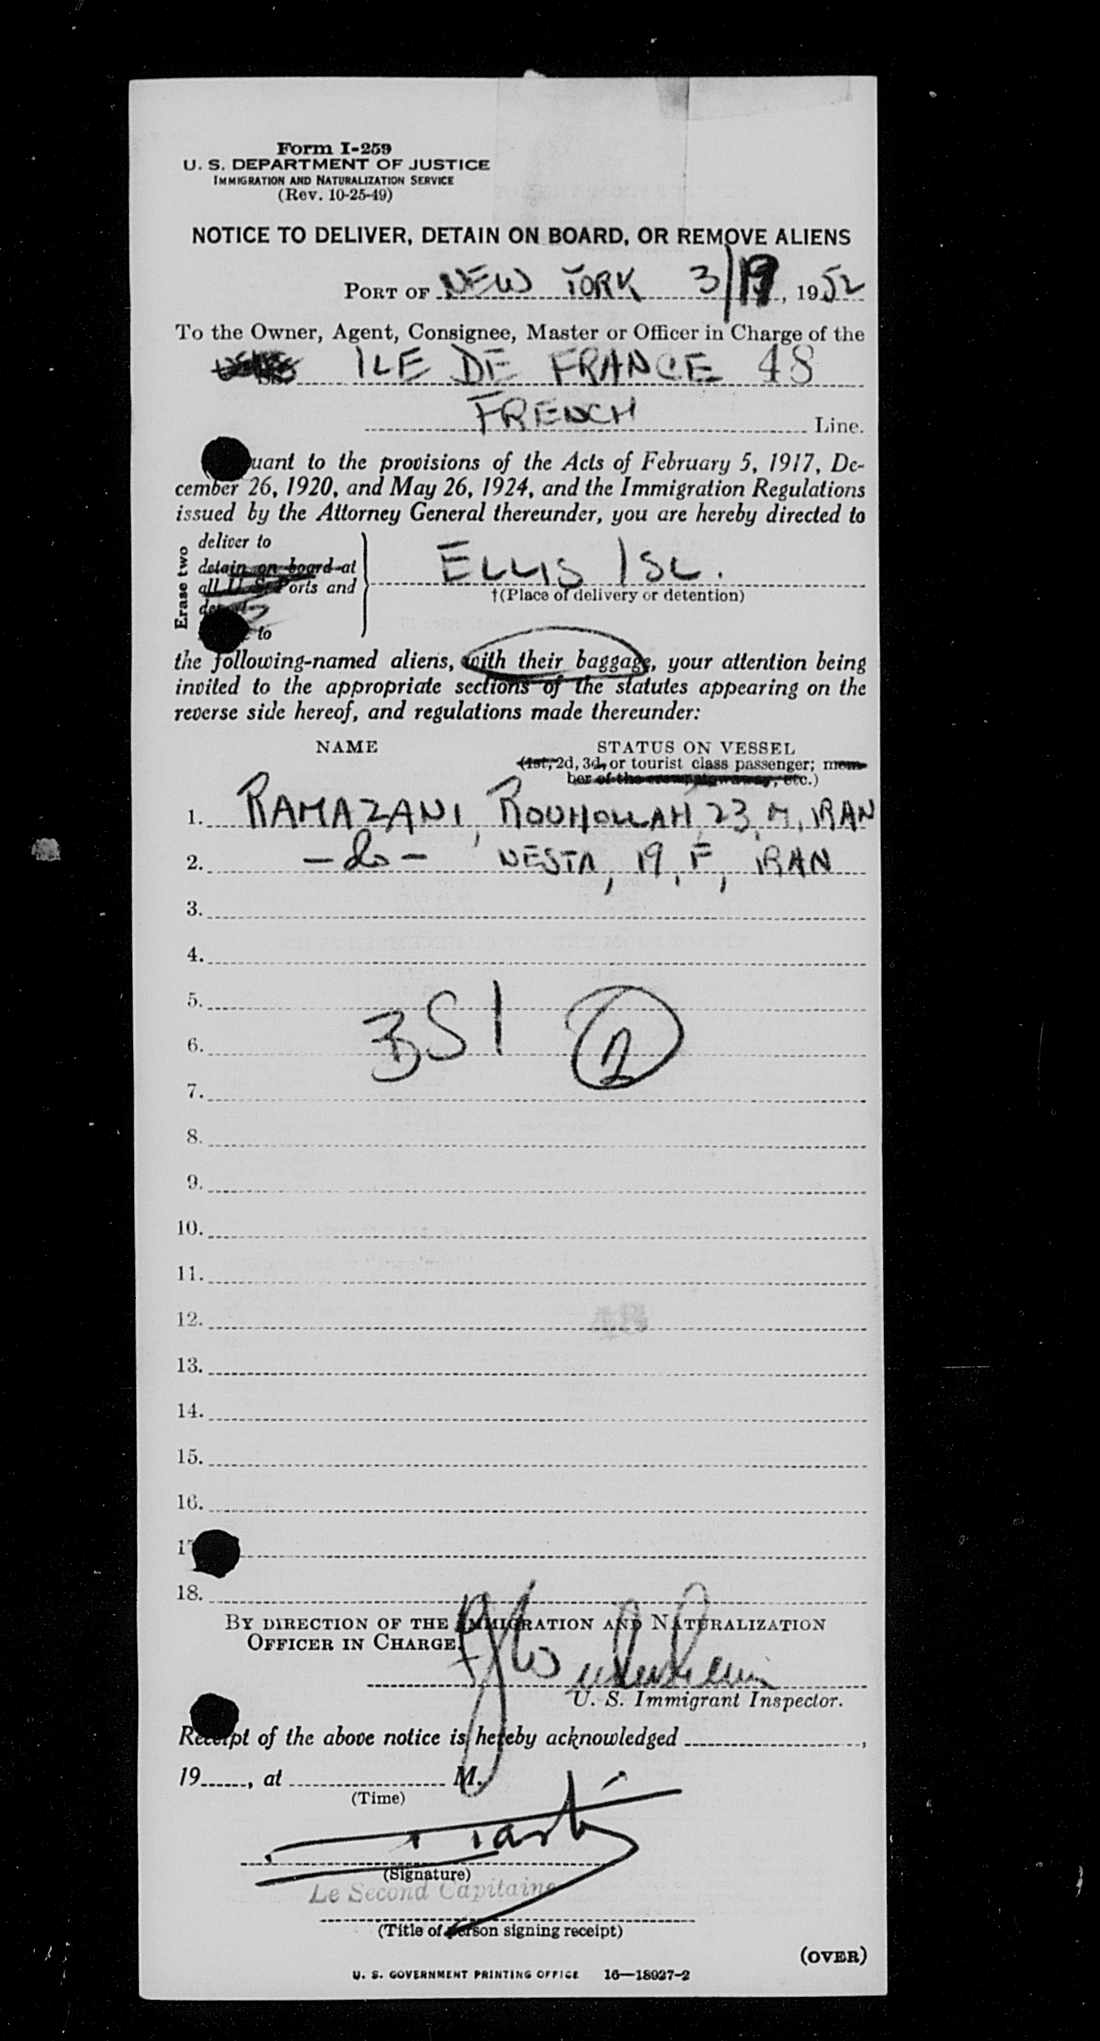 Form I-259
U. S. DEPARTMENT OF JUSTICE
IMMIGRATION AND NATURALIZATION SERVICE
(Rev. 10-25-49)
NOTICE TO DELIVER, DETAIN ON BOARD, OR REMOVE ALIENS
PORT OF NEW YORK 3/19, 1952
To the Owner, Agent, Consignee, Master or Officer in Charge of the
ILE DE FRANCE 48
FRENCH Line.
uant to the provisions of the Acts of February 5, 1917, De-
cember 26, 1920, and May 26, 1924, and the Immigration Regulations
issued by the Attorney General thereunder, you are hereby directed to
Erase two
deliver to
detain on board at
all U. S. Ports and
to
ELLIS ISL.
†(Place of delivery or detention)
the following-named aliens, with their baggage, your attention being
invited to the appropriate sections of the statutes appearing on the
reverse side hereof, and regulations made thereunder:
NAME STATUS ON VESSEL
(1st, 2d, 3d, or tourist class passenger; mem-
ber of the crew, stowaway, etc.)
1. RAMAZANI, ROUHOLLAH, 23, M, IRAN
2. -do- NESTA, 19, F, IRAN
3.
4.
5.
BSI 2
6.
7.
8.
9.
10.
11.
12.
13.
14.
15.
16.
17
18.
BY DIRECTION OF THE IMMIGRATION AND NATURALIZATION
OFFICER IN CHARGE.
U. S. Immigrant Inspector.
Receipt of the above notice is hereby acknowledged ,
19 , at M.
(Time)
(Signature)
Le Second Capitaine
(Title of person signing receipt)
(OVER)
U. S. GOVERNMENT PRINTING OFFICE 16—18927-2